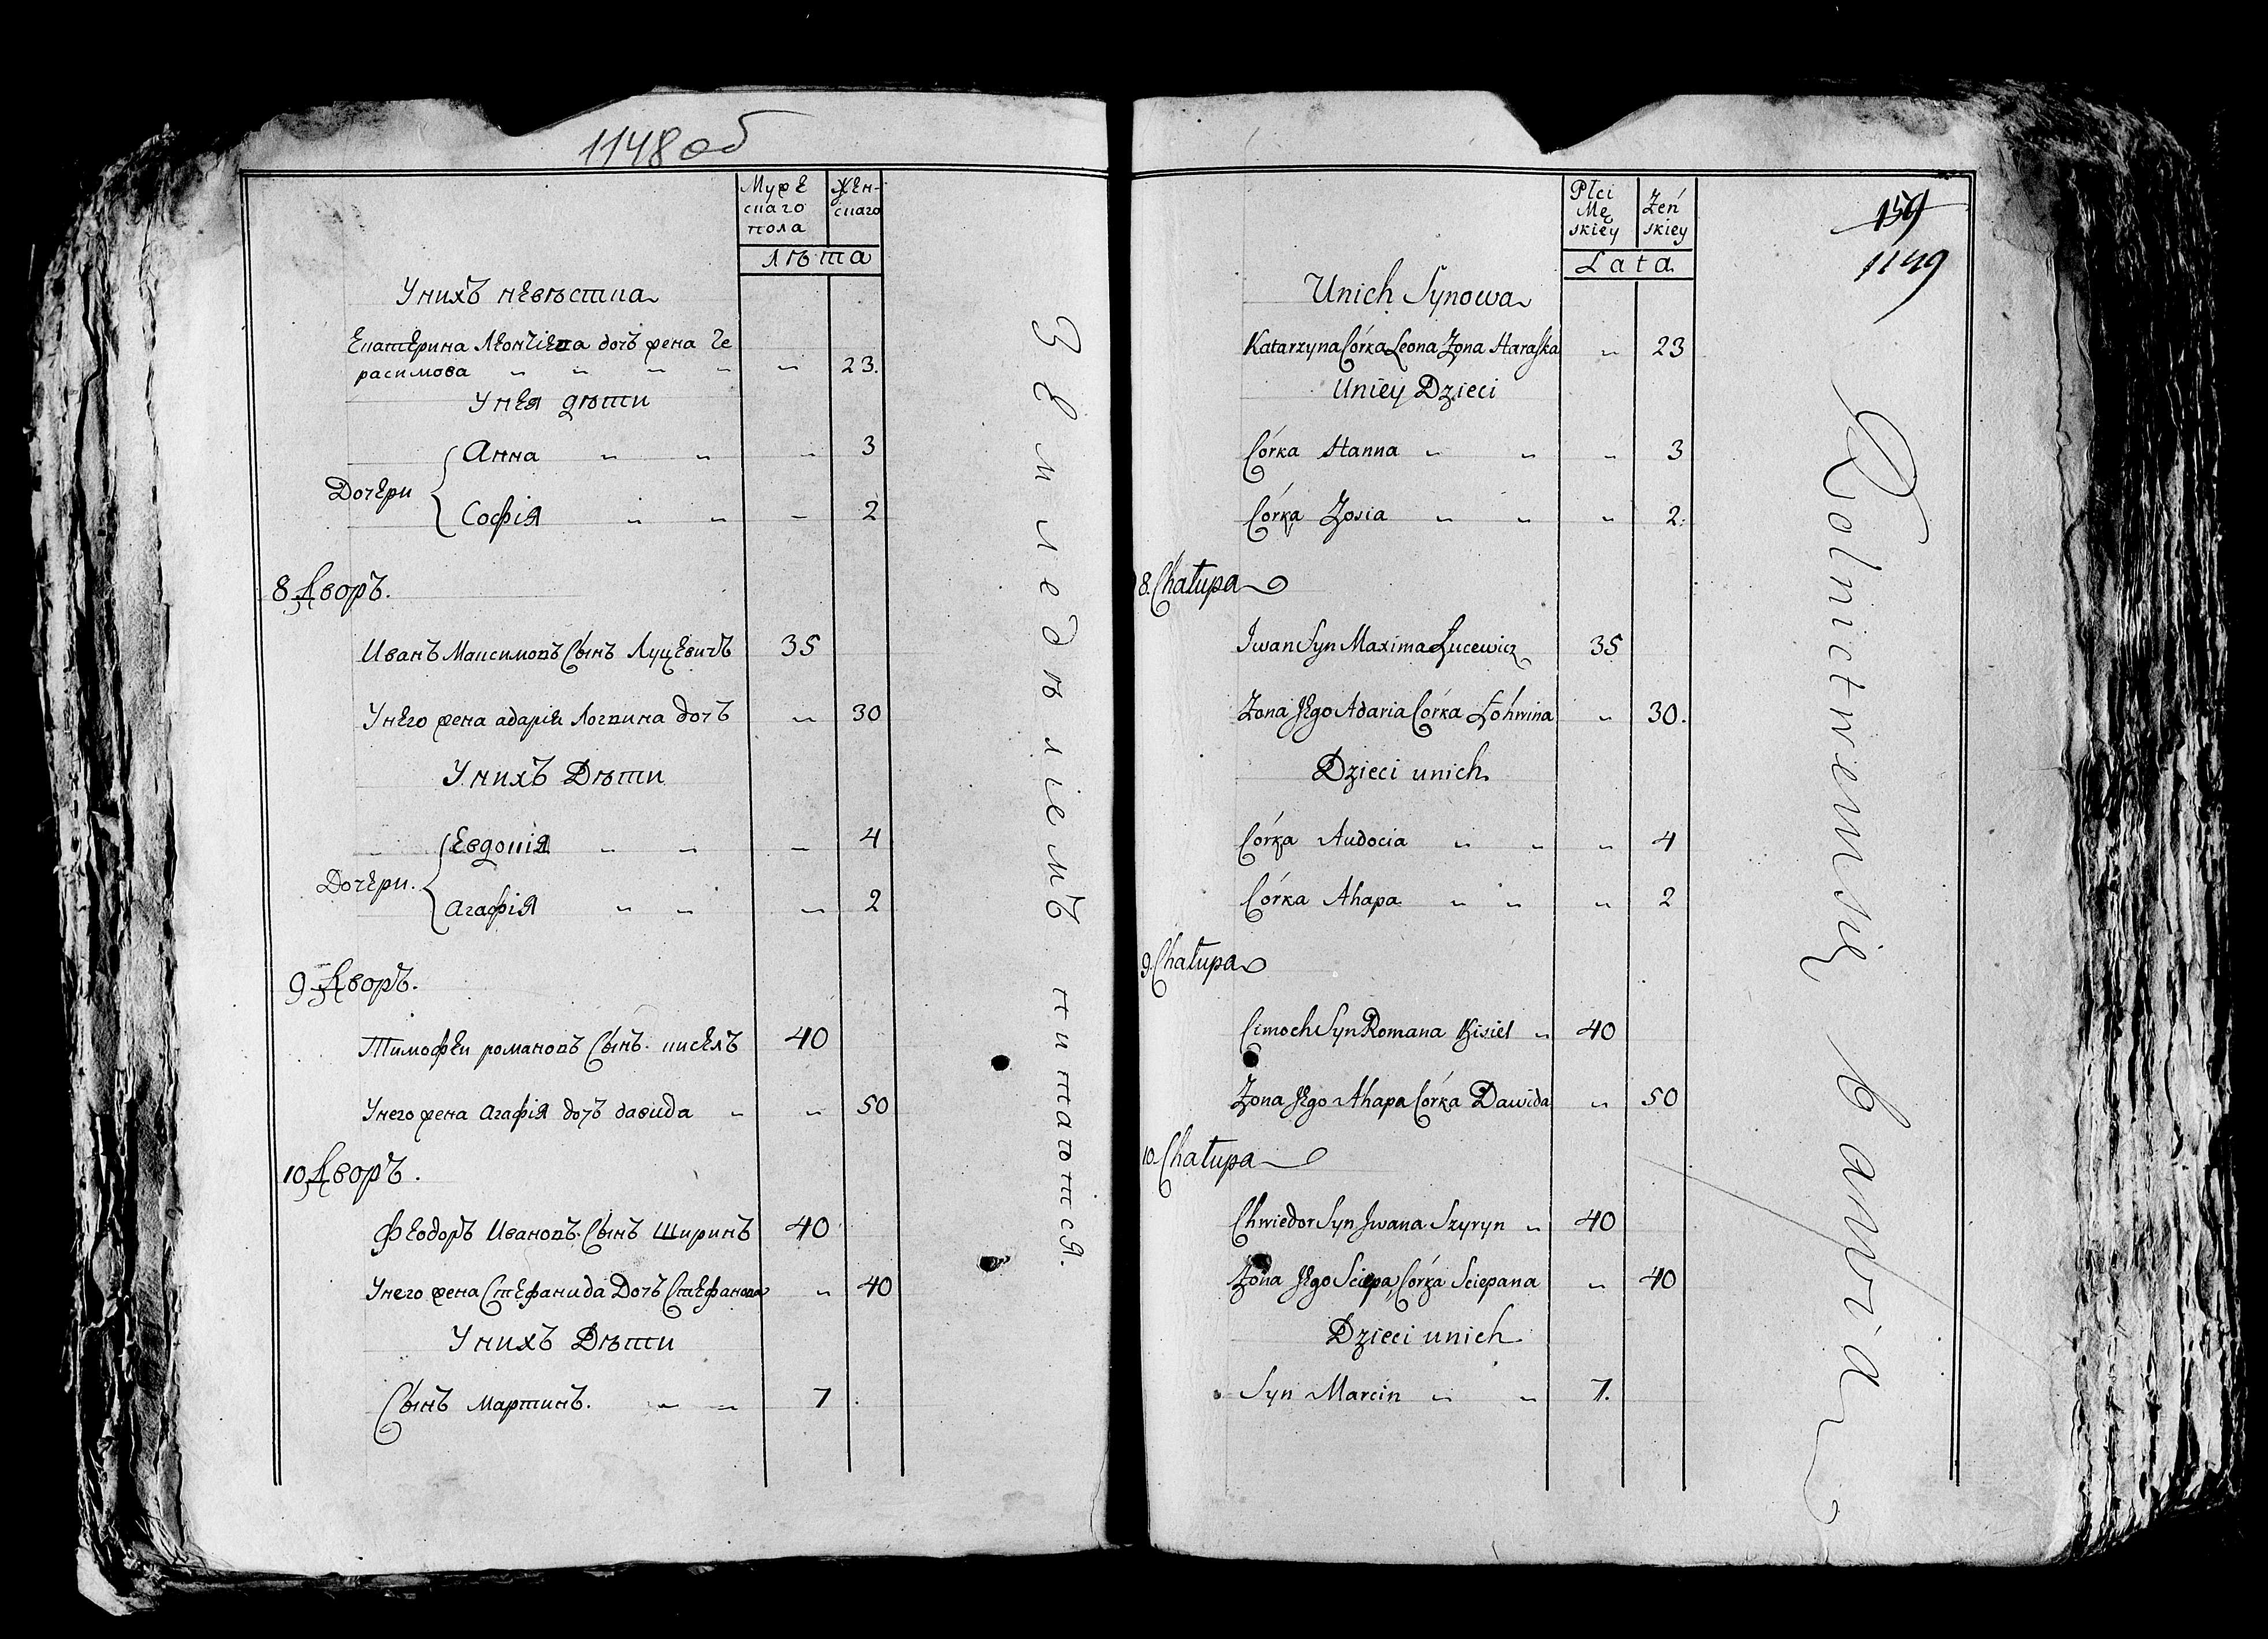 1148 об
Муже
скаго
пола
Жен-
скаго
лѣта
У нихъ невѣстка
Екатерина Леонтіева дочъ жена Ге
расимова " " " " " 23.
У нея дѣти
Анна " " " 3
Дочери
Софія " " " 2
8 Дворъ.
Иванъ Максимовъ Сынъ Луцевичъ 35
У него жена адарія Логвина дочъ " 30
У нихъ Дѣти
Евдокія " " " 4
Дочери.
Агафія " " " 2
9 Дворъ.
Тимофеи романовъ Сынъ кисель 40
У него жена Агафія дочъ давида " " 50
10 Дворъ.
Феодоръ Ивановъ Сынъ Ширинъ 40
У него жена Стефанида Дочъ Стефанова " 40
У нихъ Дѣти
Сынъ Мартинъ. " " 7
Земледѣліемъ питаются.
Płci
Mę
skiey
Żeń
skiey
Lata
159
1149
Unich Synowa
Katarzyna Córka Leona Żona Haraśka " 23
Uniey Dzieci
Córka Hanna " " " 3
Córka Zosia " " " 2.
8. Chałupa
Jwan Syn Maxima Łucewicz 35
Żona Jego Adaria Córka Łohwina " 30.
Dzieci unich
Córka Audocia " " " 4
Córka Ahapa " " " 2
9. Chałupa
Cimoch Syn Romana Kisiel " 40
Żona Jego Ahapa Córka Dawida " 50
10. Chałupa
Chwiedor Syn Jwana Szyryn " 40
Żona Jego Sciepa, Córka Sciepana " 40
Dzieci unich
Syn Marcin " " 7.
Rolnictwem się bawią